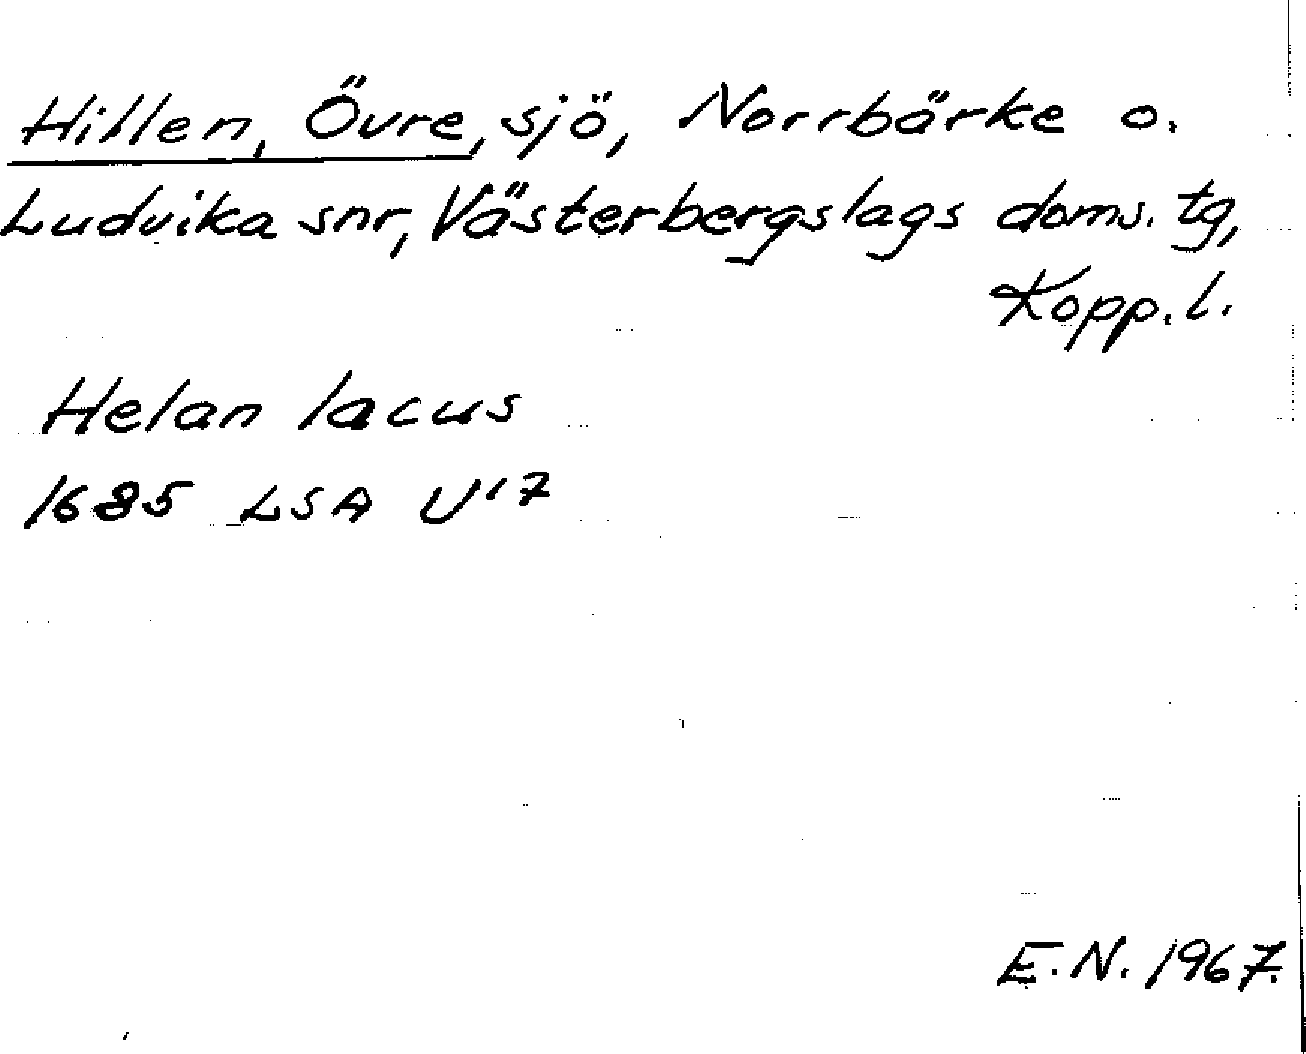 Hillen, Övre, sjö, Norrbärke o.
Ludvika snr, Västerbergslags doms. tg,
Kopp. l.
Helan lacus
1685 LSA U'7
E.N. 1967.